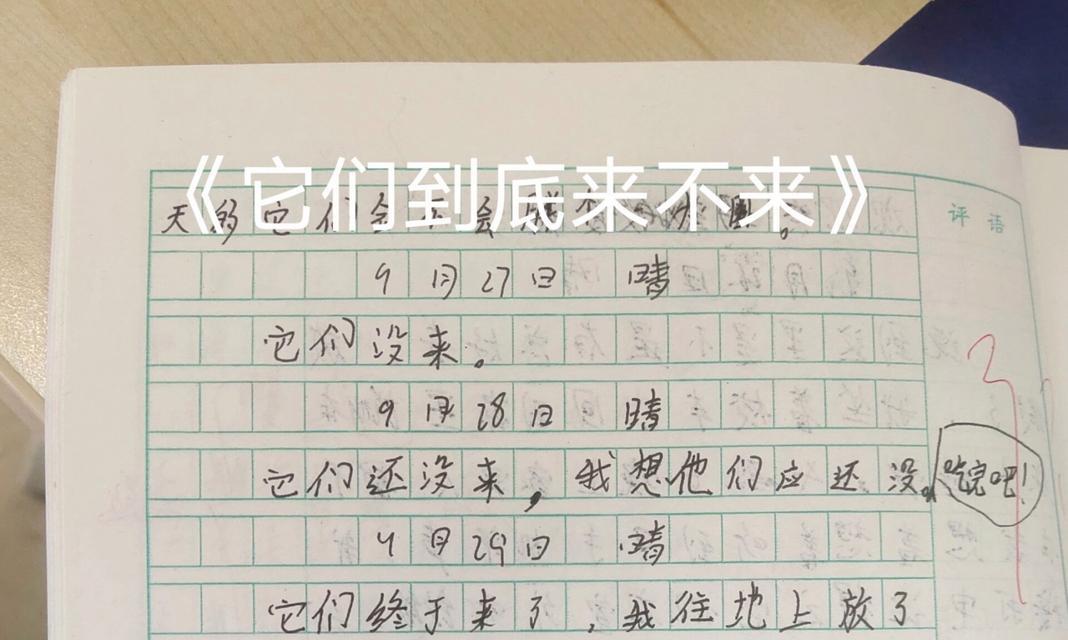 《它们到底来不来》
天的它们会不会
评语
9月27日 晴
它们没来。
9月28日 晴
它们还没来，我想他们应还没
吃完吧！
9月29日 晴
它们终于来了，我往地上放了